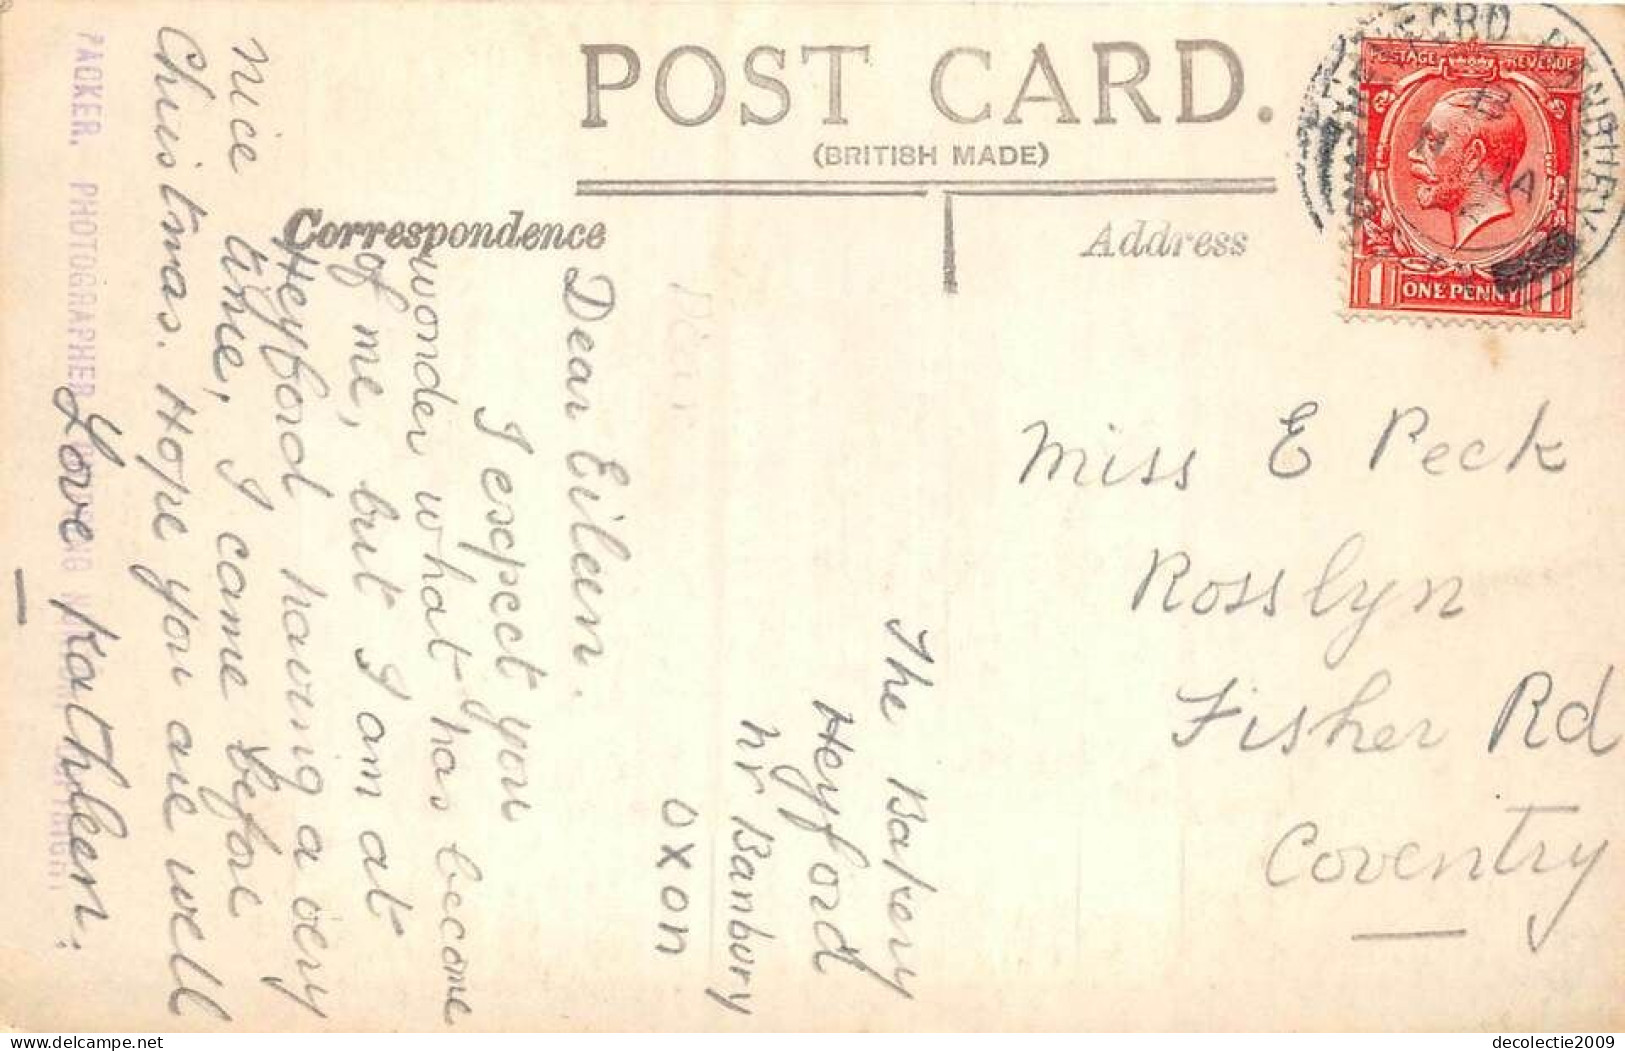 POST CARD.
(BRITISH MADE)
Correspondence
Address
POSTAGE REVENUE
1 ONE PENNY 1
BANBURY
Miss E Peck
Rosslyn
Fisher Rd
Coventry
The Bakery
Heyford
Nr Banbury
OXON
Dear Eileen.
I expect you
wonder what has become
of me, but I am at
Heyford having a very
nice time, I came before
Christmas. Hope you are well
Love Kathleen.
PACKER, PHOTOGRAPHER
decolectie2009